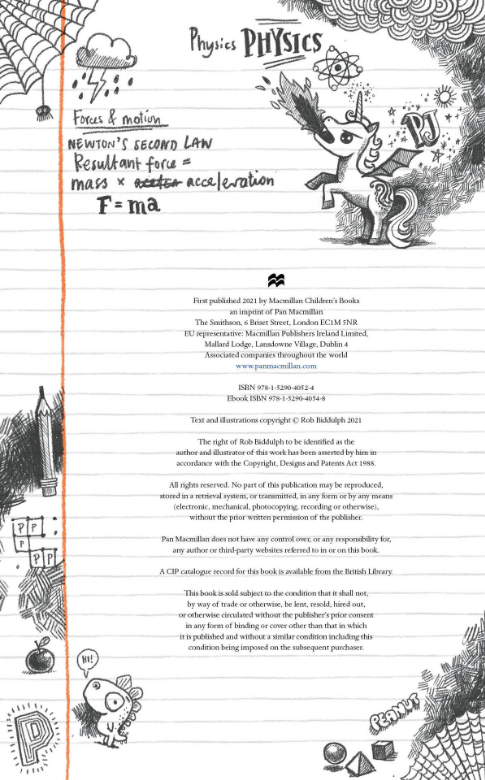 Physics PHYSICS
PJ
Forces & motion
NEWTON'S SECOND LAW
Resultant force =
mass x acceleration
F = ma
First published 2021 by Macmillan Children's Books
an imprint of Pan Macmillan
The Smithson, 6 Briset Street, London EC1M 5NR
EU representative: Macmillan Publishers Ireland Limited,
Mallard Lodge, Lansdowne Village, Dublin 4
Associated companies throughout the world
www.panmacmillan.com
ISBN 978-1-5290-4052-4
Ebook ISBN 978-1-5290-4054-8
Text and illustrations copyright © Rob Biddulph 2021
The right of Rob Biddulph to be identified as the
author and illustrator of this work has been asserted by him in
accordance with the Copyright, Designs and Patents Act 1988.
All rights reserved. No part of this publication may be reproduced,
stored in a retrieval system, or transmitted, in any form or by any means
(electronic, mechanical, photocopying, recording or otherwise),
without the prior written permission of the publisher.
Pan Macmillan does not have any control over, or any responsibility for,
any author or third-party websites referred to in or on this book.
A CIP catalogue record for this book is available from the British Library.
This book is sold subject to the condition that it shall not,
by way of trade or otherwise, be lent, resold, hired out,
or otherwise circulated without the publisher's prior consent
in any form of binding or cover other than that in which
it is published and without a similar condition including this
condition being imposed on the subsequent purchaser.
P P
P
P P
HI!
P
PEANUT